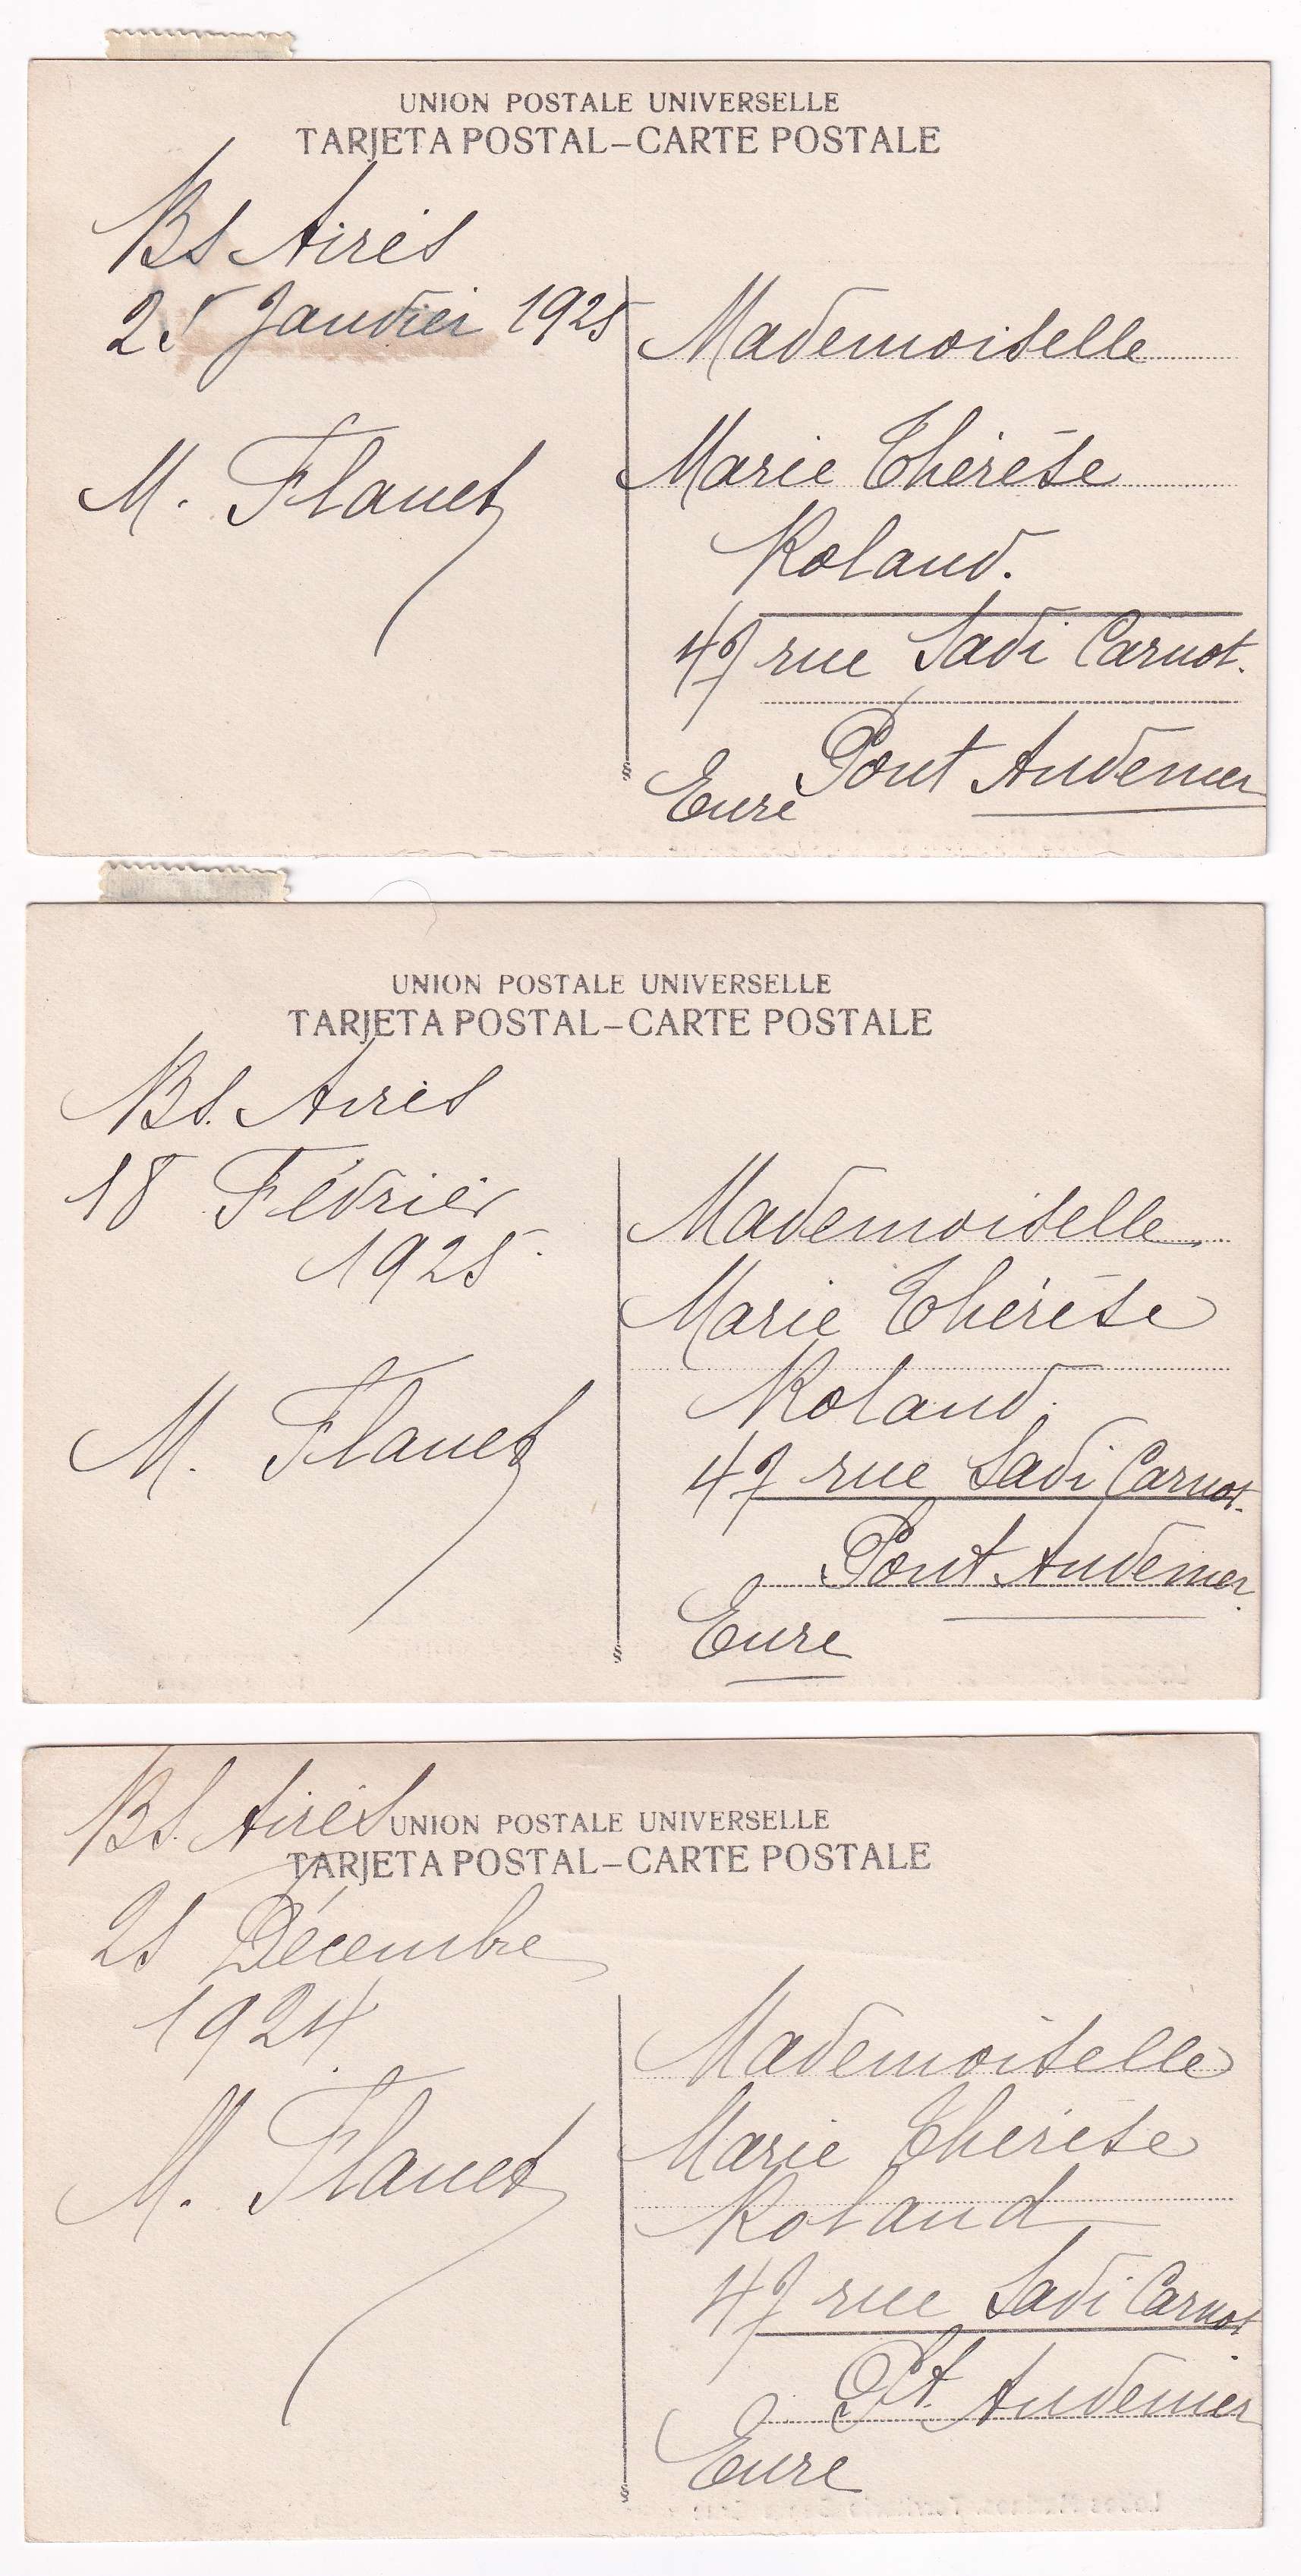 UNION POSTALE UNIVERSELLE
TARJETA POSTAL–CARTE POSTALE
Bs Aires
25 Janvier 1925
M. Flanet
Mademoiselle
Marie Thérèse
Roland.
47 rue Sadi Carnot.
Pont Audemer
Eure
UNION POSTALE UNIVERSELLE
TARJETA POSTAL–CARTE POSTALE
Bs. Aires
18 Février
1925.
M. Flanet
Mademoiselle
Marie Thérèse
Roland.
47 rue Sadi Carnot.
Pont Audemer.
Eure
Bs. Aires
UNION POSTALE UNIVERSELLE
TARJETA POSTAL–CARTE POSTALE
25 Décembre
1924.
M. Flanet
Mademoiselle
Marie Thérèse
Roland
47 rue Sadi Carnot.
Pt. Audemer
Eure